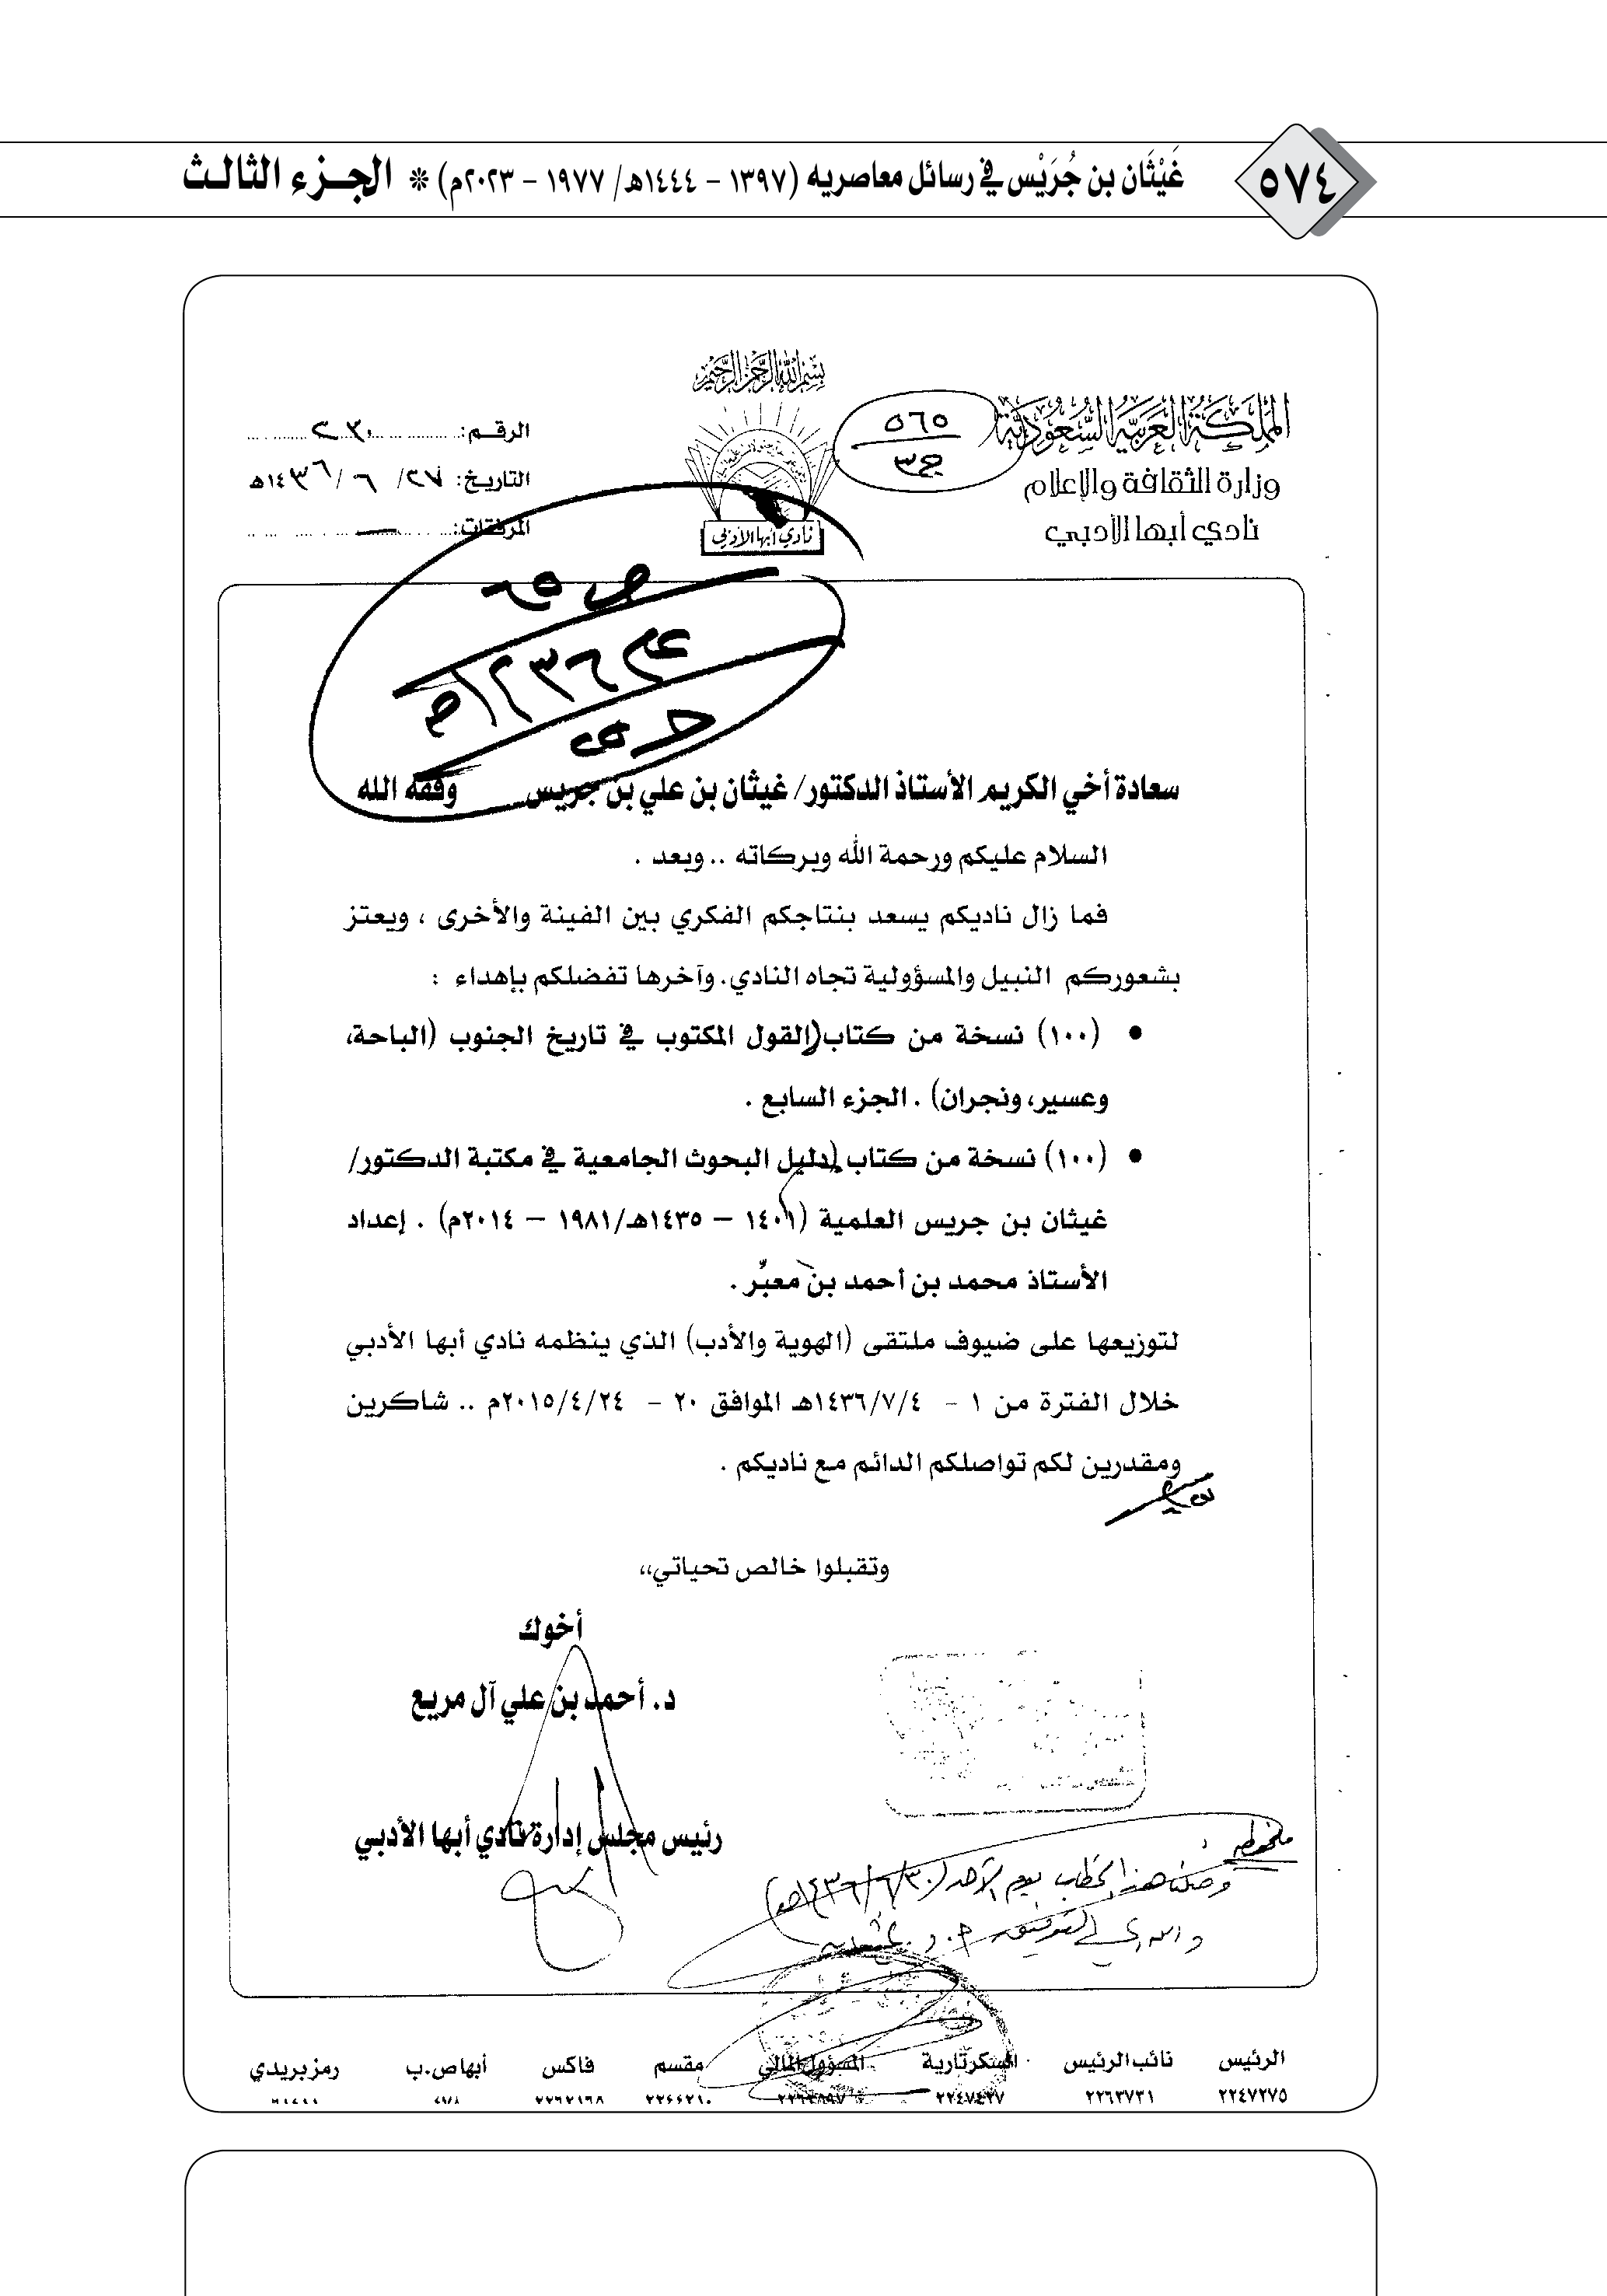 ٥٧٤
غَيْثَان بن جُرَيْس في رسائل معاصريه (١٣٩٧ – ١٤٤٤هـ/ ١٩٧٧ – ٢٠٢٣م) * الجزء الثالث
بسم الله الرحمن الرحيم
المملكة العربية السعودية
وزارة الثقافة والإعلام
نادي أبها الأدبي
٥٦٥
ج٣
نادي أبها الأدبي
الرقم: ٢٣٠
التاريخ: ٢٧/ ٦ /١٤٣٦هـ
المرفقات:
سعادة أخي الكريم الأستاذ الدكتور/ غيثان بن علي بن جريس وفقه الله
السلام عليكم ورحمة الله وبركاته .. وبعد .
فما زال ناديكم يسعد بنتاجكم الفكري بين الفينة والأخرى ، ويعتز
بشعوركم النبيل والمسؤولية تجاه النادي. وآخرها تفضلكم بإهداء :
• (١٠٠) نسخة من كتاب (القول المكتوب في تاريخ الجنوب (الباحة،
وعسير، ونجران) . الجزء السابع .
• (١٠٠) نسخة من كتاب (دليل البحوث الجامعية في مكتبة الدكتور/
غيثان بن جريس العلمية (١٤٠١ – ١٤٣٥هـ/١٩٨١ – ٢٠١٤م) . إعداد
الأستاذ محمد بن أحمد بن معبّر .
لتوزيعها على ضيوف ملتقى (الهوية والأدب) الذي ينظمه نادي أبها الأدبي
خلال الفترة من ١ - ١٤٣٦/٧/٤هـ الموافق ٢٠ - ٢٠١٥/٤/٢٤م .. شاكرين
ومقدرين لكم تواصلكم الدائم مع ناديكم .
وتقبلوا خالص تحياتي،،
أخوك
د. أحمد بن علي آل مريع
رئيس مجلس إدارة نادي أبها الأدبي
ملحوظة :
وصلنا هذا الخطاب يوم الأحد (١٤٣٦/٦/٣٠هـ)
والله ولي التوفيق
الرئيس نائب الرئيس السكرتارية المسؤول المالي مقسم فاكس أبها ص.ب رمز بريدي
٢٢٤٧٢٧٥ ٢٢٦٣٧٣١